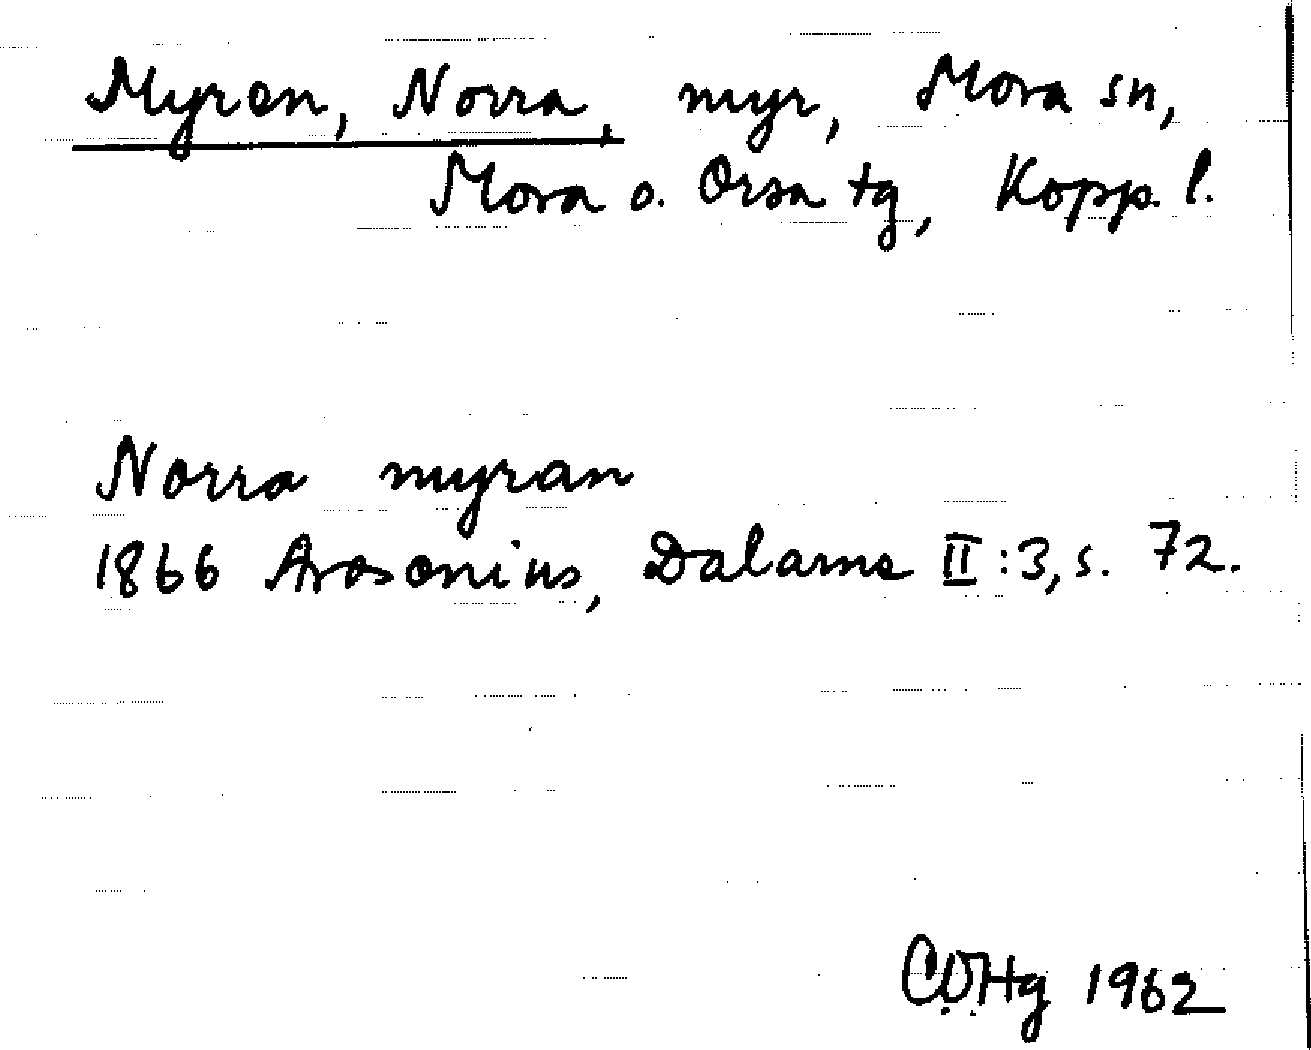 Myran, Norra, myr, Mora sn,
Mora o. Orsa tg, Kopp. l.
Norra myran
1866 Arosenius, Dalarne II:3, s. 72.
1962